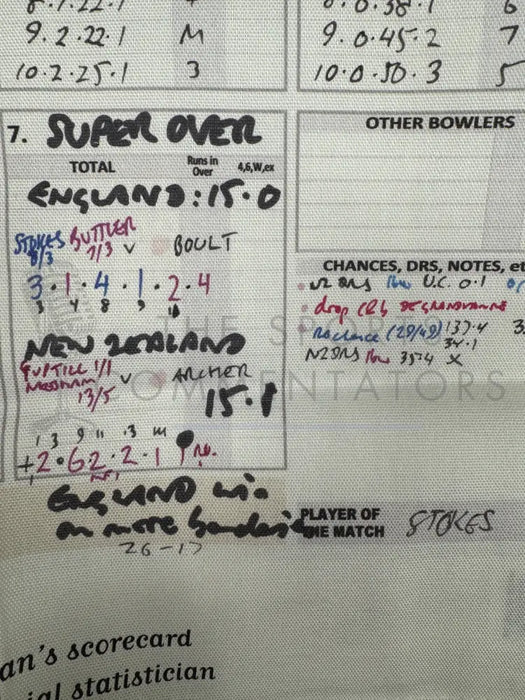 8.1.22.1
9.2.22.1 M
10.2.25.1 3
8.0.38.1 6
9.0.45.2 7
10.0.50.3 5
7. SUPER OVER
TOTAL Runs in Over 4,6,W,ex
ENGLAND: 15.0
STOKES BUTTLER v BOULT
8/3 7/3
3.1.4.1.2.4
3 4 8 9 11
NEW ZEALAND
GUPTILL 1/1
NEESHAM 13/5 v ARCHER
15.1
1 3 9 11 13 14
+2.6.2.2.1 R.O.
1
ENGLAND win
on more boundaries
26-17
OTHER BOWLERS
CHANCES, DRS, NOTES, et
NZ DRS U.C. 0.1
drop CRB DE GRANDHOMME
134.1
NZ DRS 35.4 X
PLAYER OF THE MATCH STOKES
THE S
COMMENTATORS
an's scorecard
ial statistician